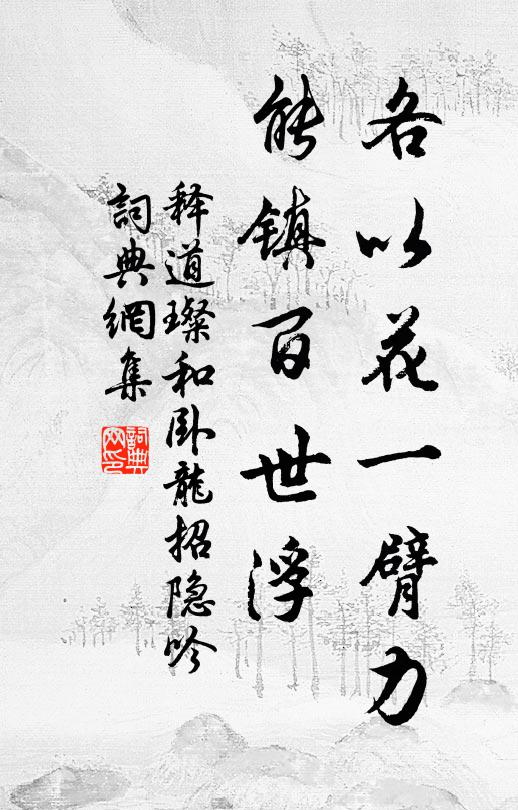 各以花一臂力
能镇百世浮
释道璨和卧龍招隐吟
詞典網集
詞典
网印